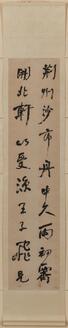 荆州沙市丹中久雨初霽
開北軒以受涼王子飛見